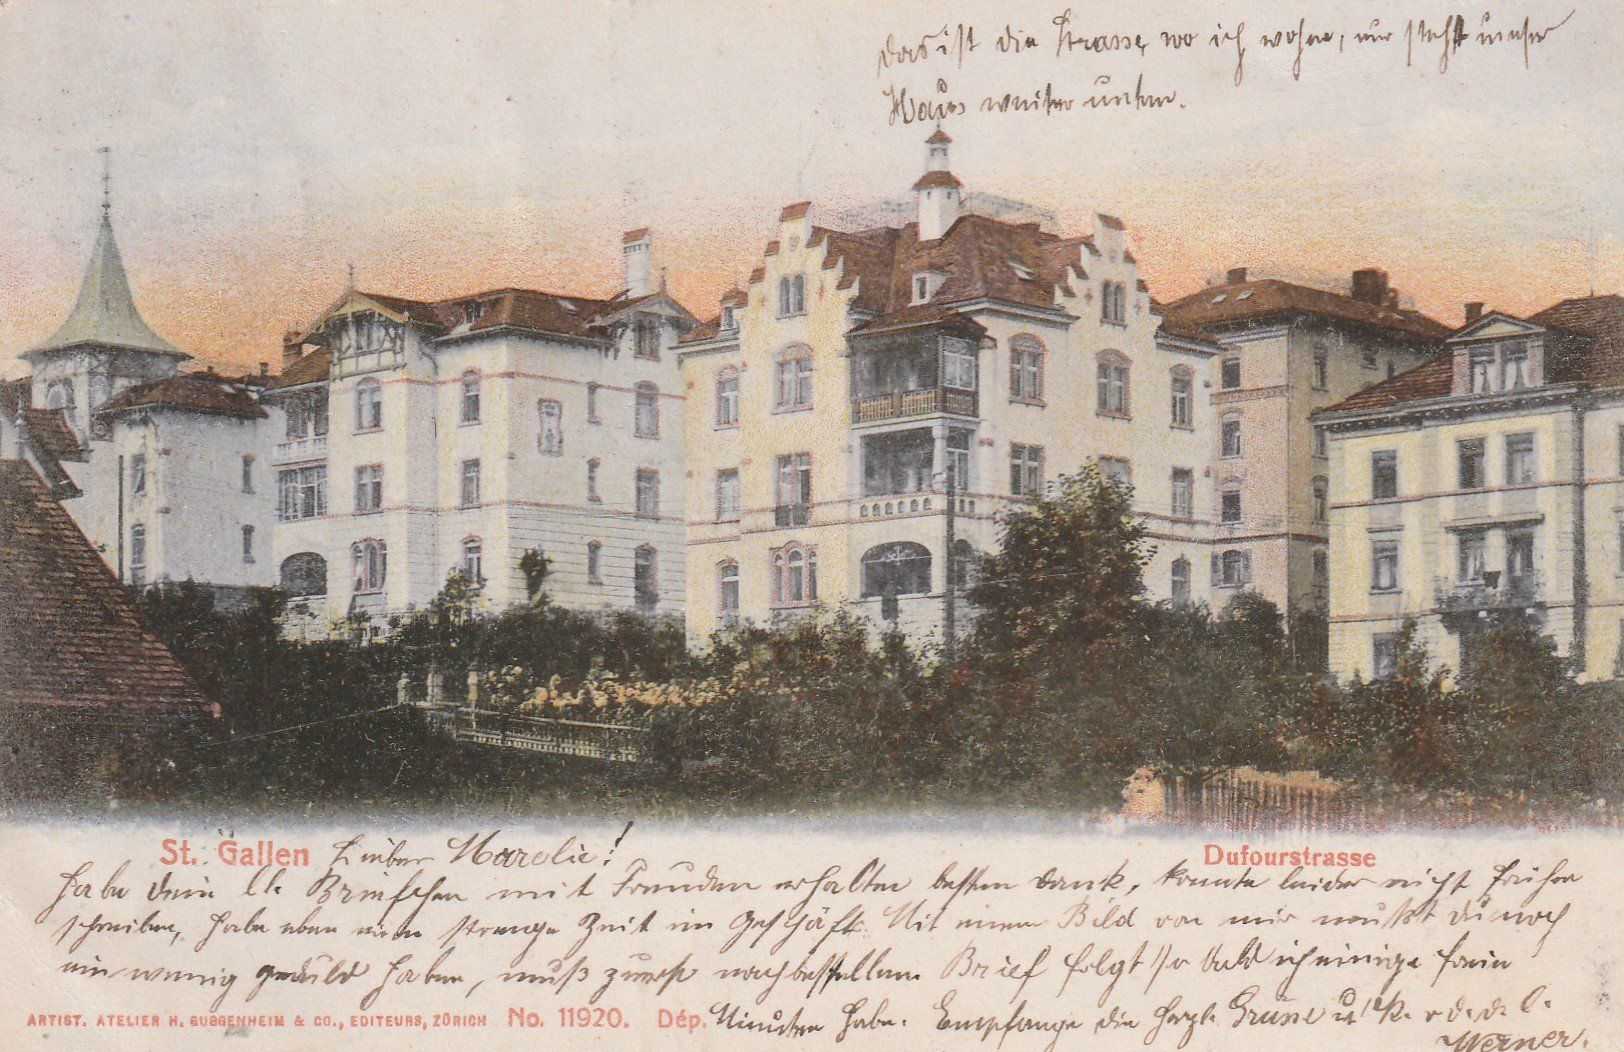 das ist die Strasse, wo ich wohne, nur steht unser
Haus weiter unten.
St. Gallen
Lieber Marelie!
Dufourstrasse
habe dein lb. Briefchen mit Freuden erhalten besten Dank, konnte leider nicht früher
schreiben, habe eben eine strenge Zeit im Geschäft. Mit einem Bild von mir mußt du noch
ein wenig geduld haben, muß zuerst nachbestellen. Brief folgt so bald ich einige freie
Minuten habe. Empfange die herzl. Grüsse u. K. v. d. d. l.
Werner.
ARTIST. ATELIER H. GUGGENHEIM & CO., EDITEURS, ZÜRICH No. 11920. Dép.